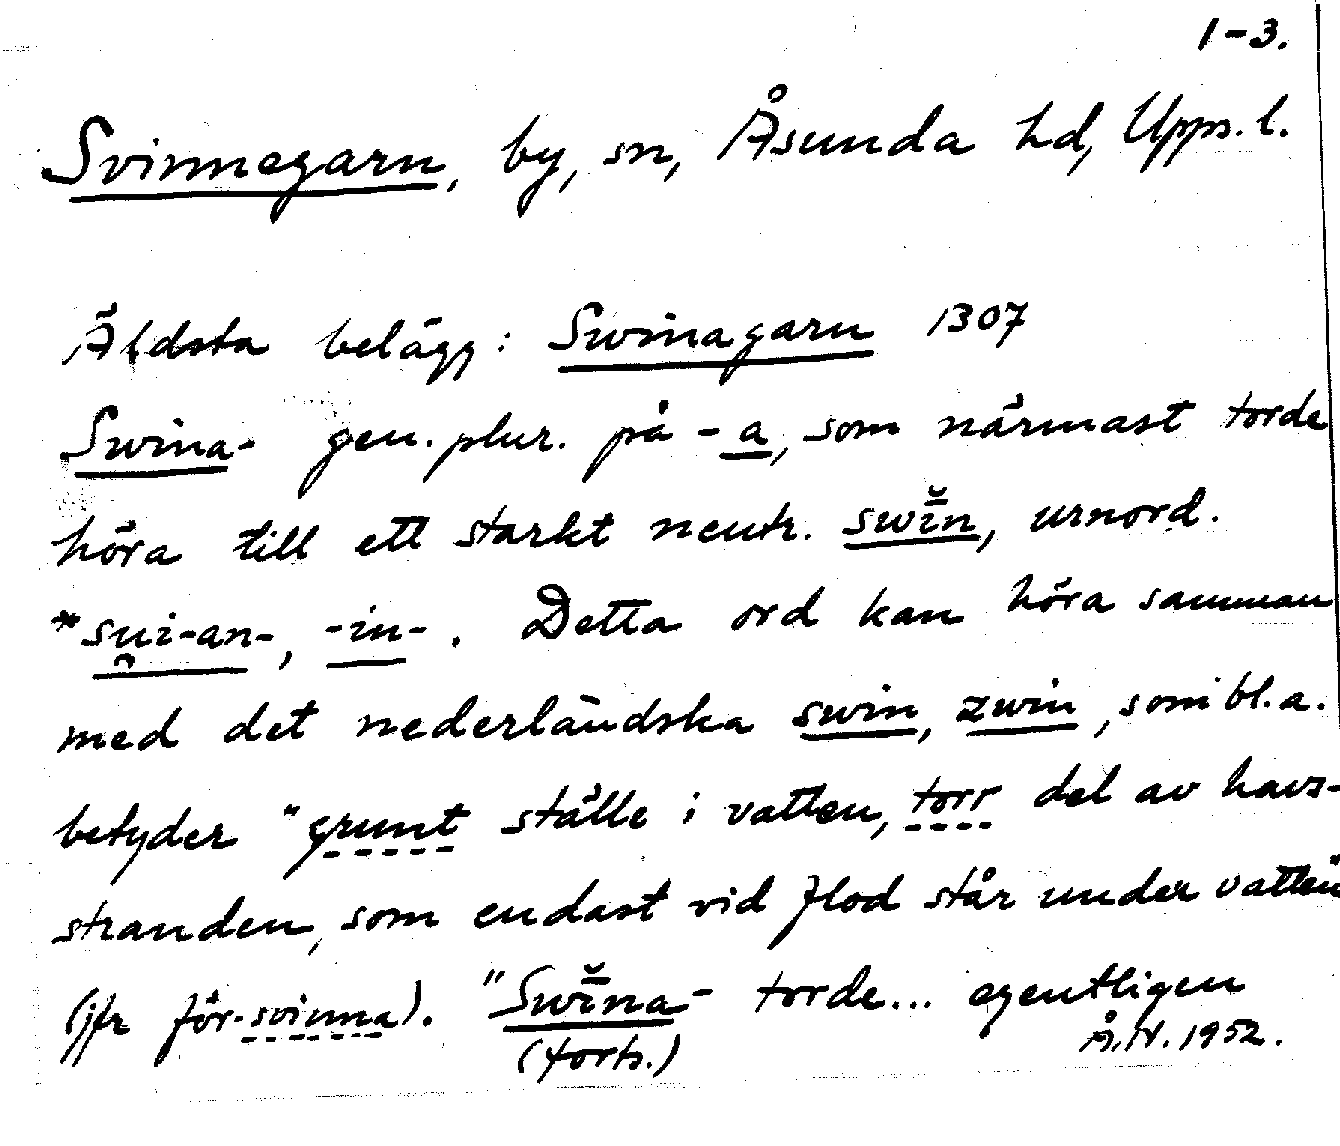 1-3.
Svinnegarn, by, sn, Åsunda hd, Upps. l.
Äldsta belägg: Swinagarn 1307
Swina- gen. plur. på -a, som närmast torde
höra till ett starkt neutr. swī̆n, urnord.
*su̯i-an-, -in-. Detta ord kan höra samman
med det nederländska swin, zwin, som bl. a.
betyder "grunt ställe i vatten, torr del av havs-
stranden, som endast vid flod står under vatten"
(jfr för-svinna). "Swī̆na- torde... egentligen
(forts.) Å. N. 1952.